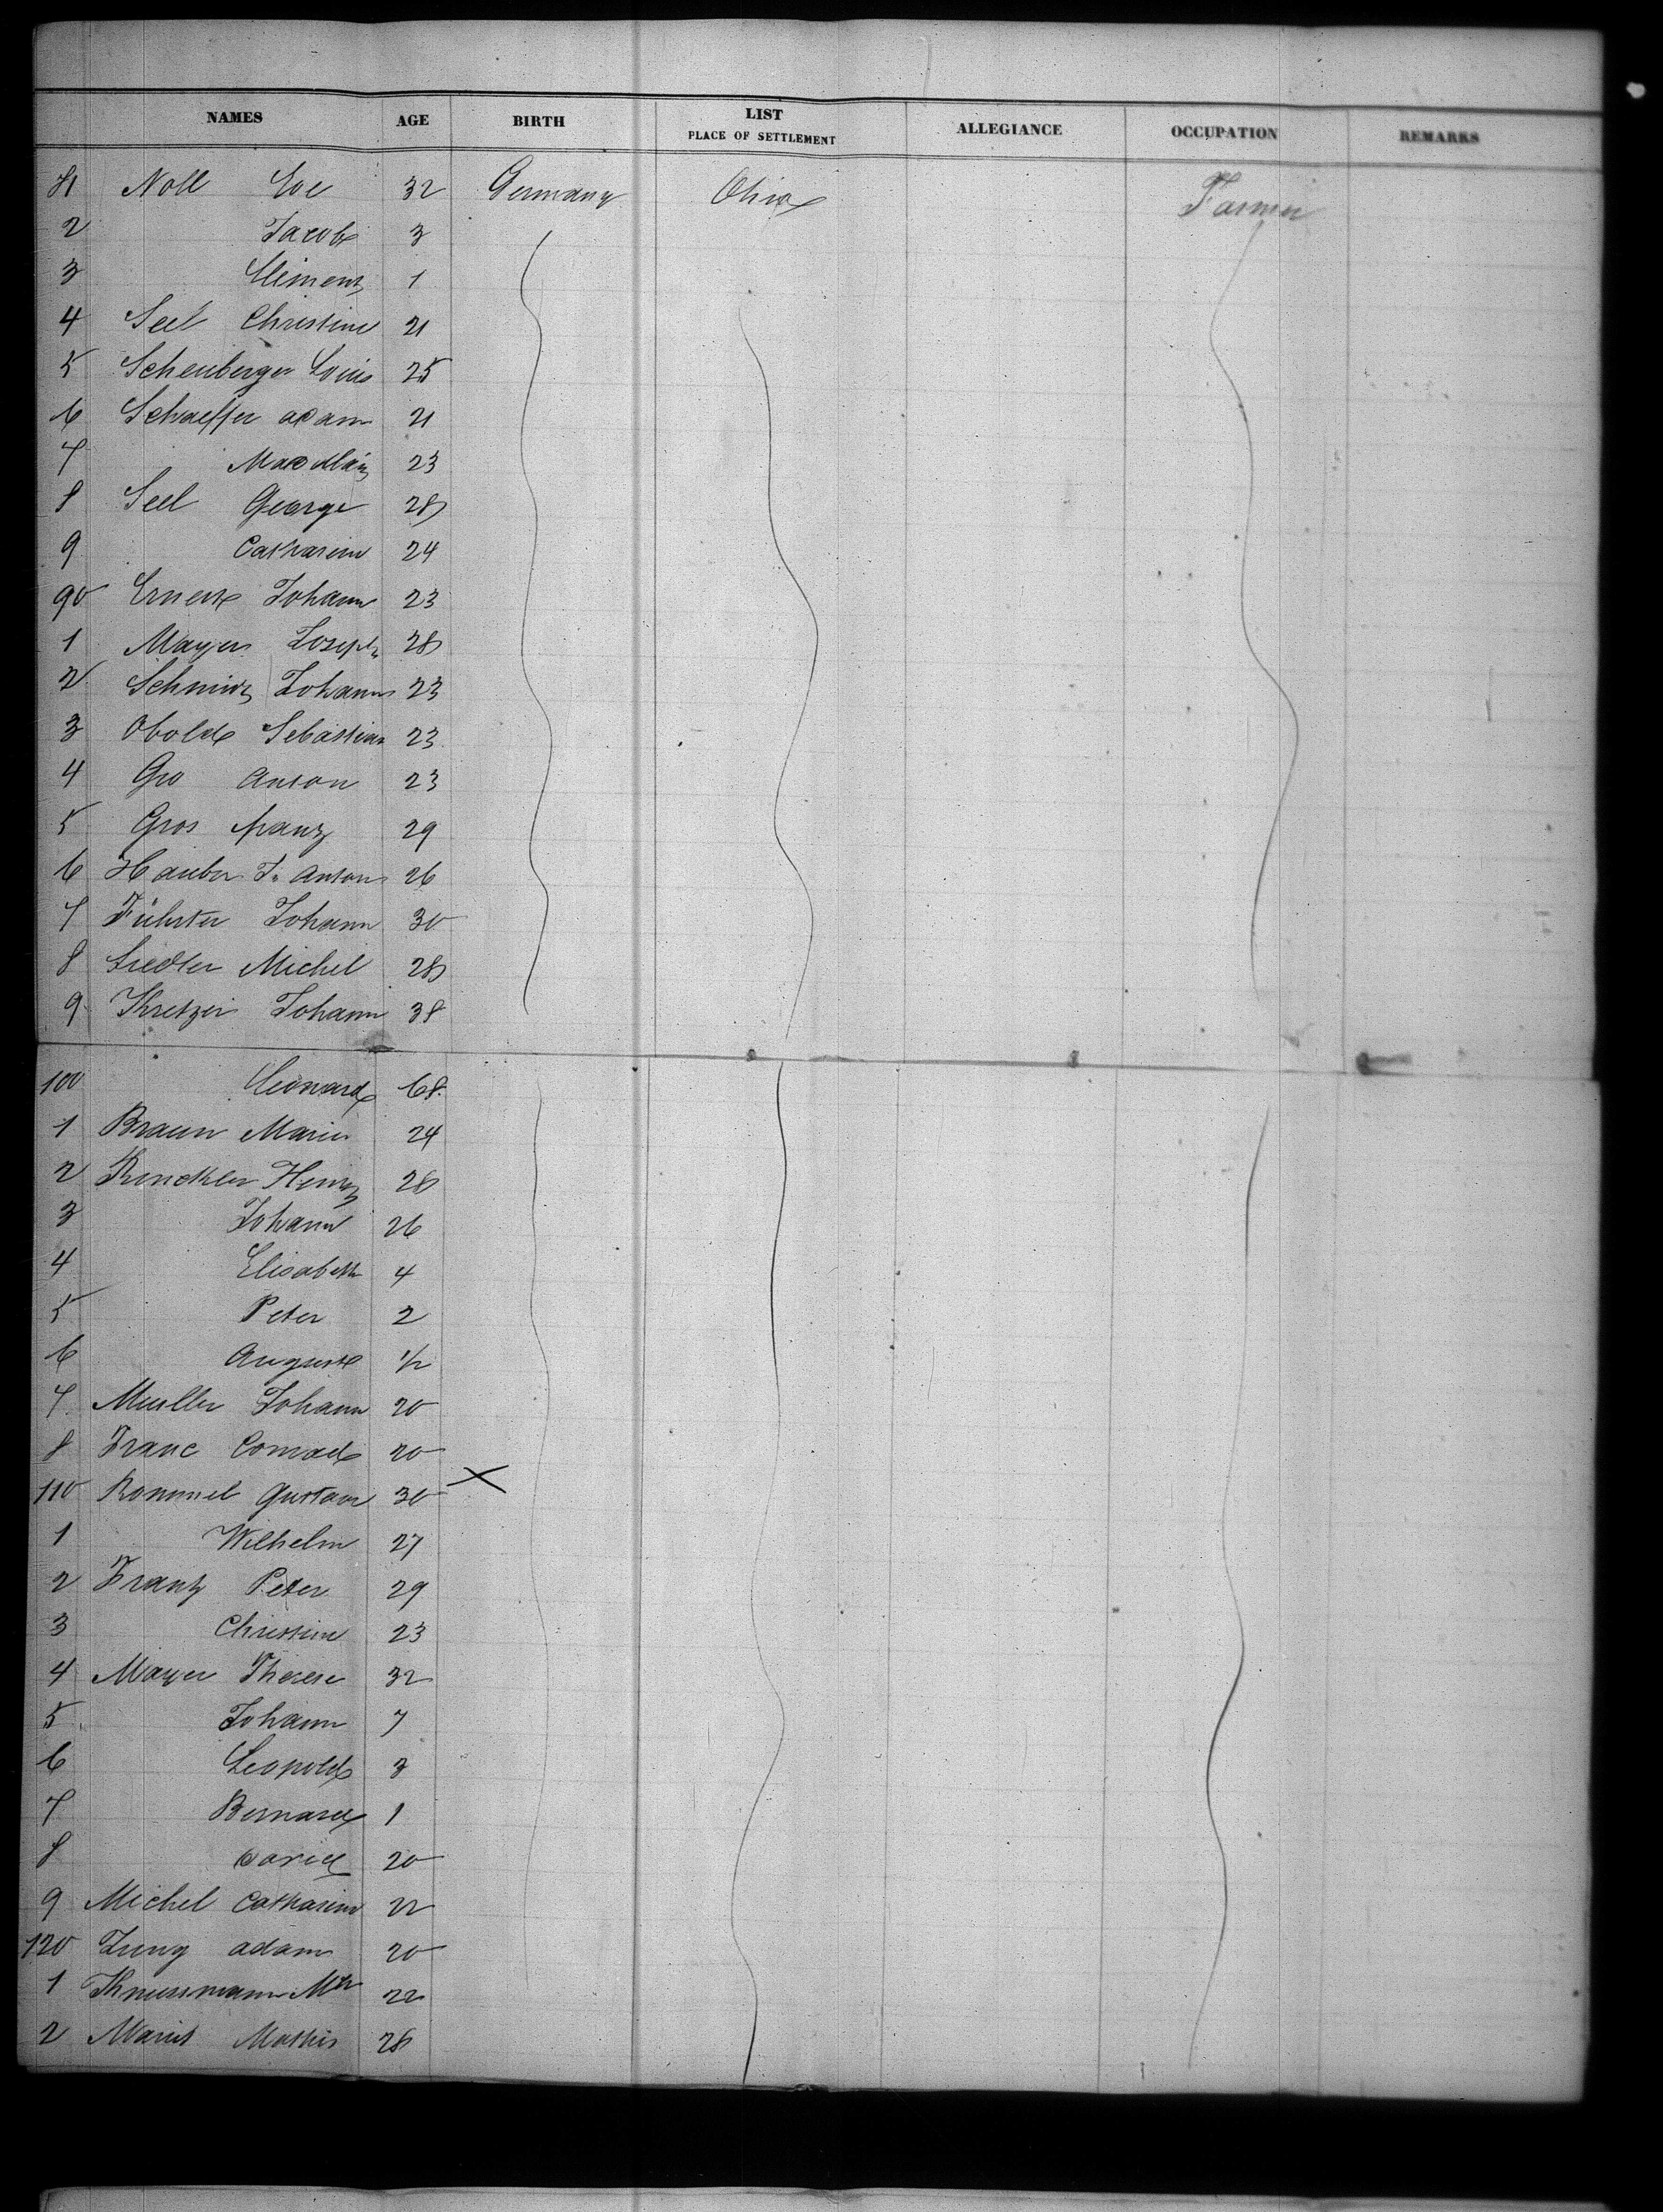 NAMES AGE BIRTH LIST PLACE OF SETTLEMENT ALLEGIANCE OCCUPATION REMARKS
81 Noll 32 Germany Ohio Farmer
2 Jacob 3
3 Clemens 1
4 Seel Christine 21
5 Scheuberger Louis 25
6 Schaeffer adam 21
7 23
8 Seel George 28
9 Catharine 24
90 Ernest Johann 23
1 Mayer Joseph 28
2 Johann 23
3 Obold Sebastian 23
4 Gro Anton 23
5 Gros franz 29
6 Hauber J. Anton 26
7 Führter Johann 30
8 Siedler Michel 28
9 Kretzer Johann 38
100 Leonard 68
1 Braun Marie 24
2 Henry 28
3 Johann 26
4 Elisabeth 4
5 Peter 2
6 August 1/2
7 Muller Johann 20
8 Franc Conrad 20
110 Rommel Gustav 30 X
1 Wilhelm 27
2 Frantz Peter 29
3 Christine 23
4 Mayer Therese 32
5 Johann 7
6 Leopold 3
7 Bernard 1
8 David 20
9 Michel Catharine 22
120 Jung adam 20
1 Knussmann 22
2 Mathis 28